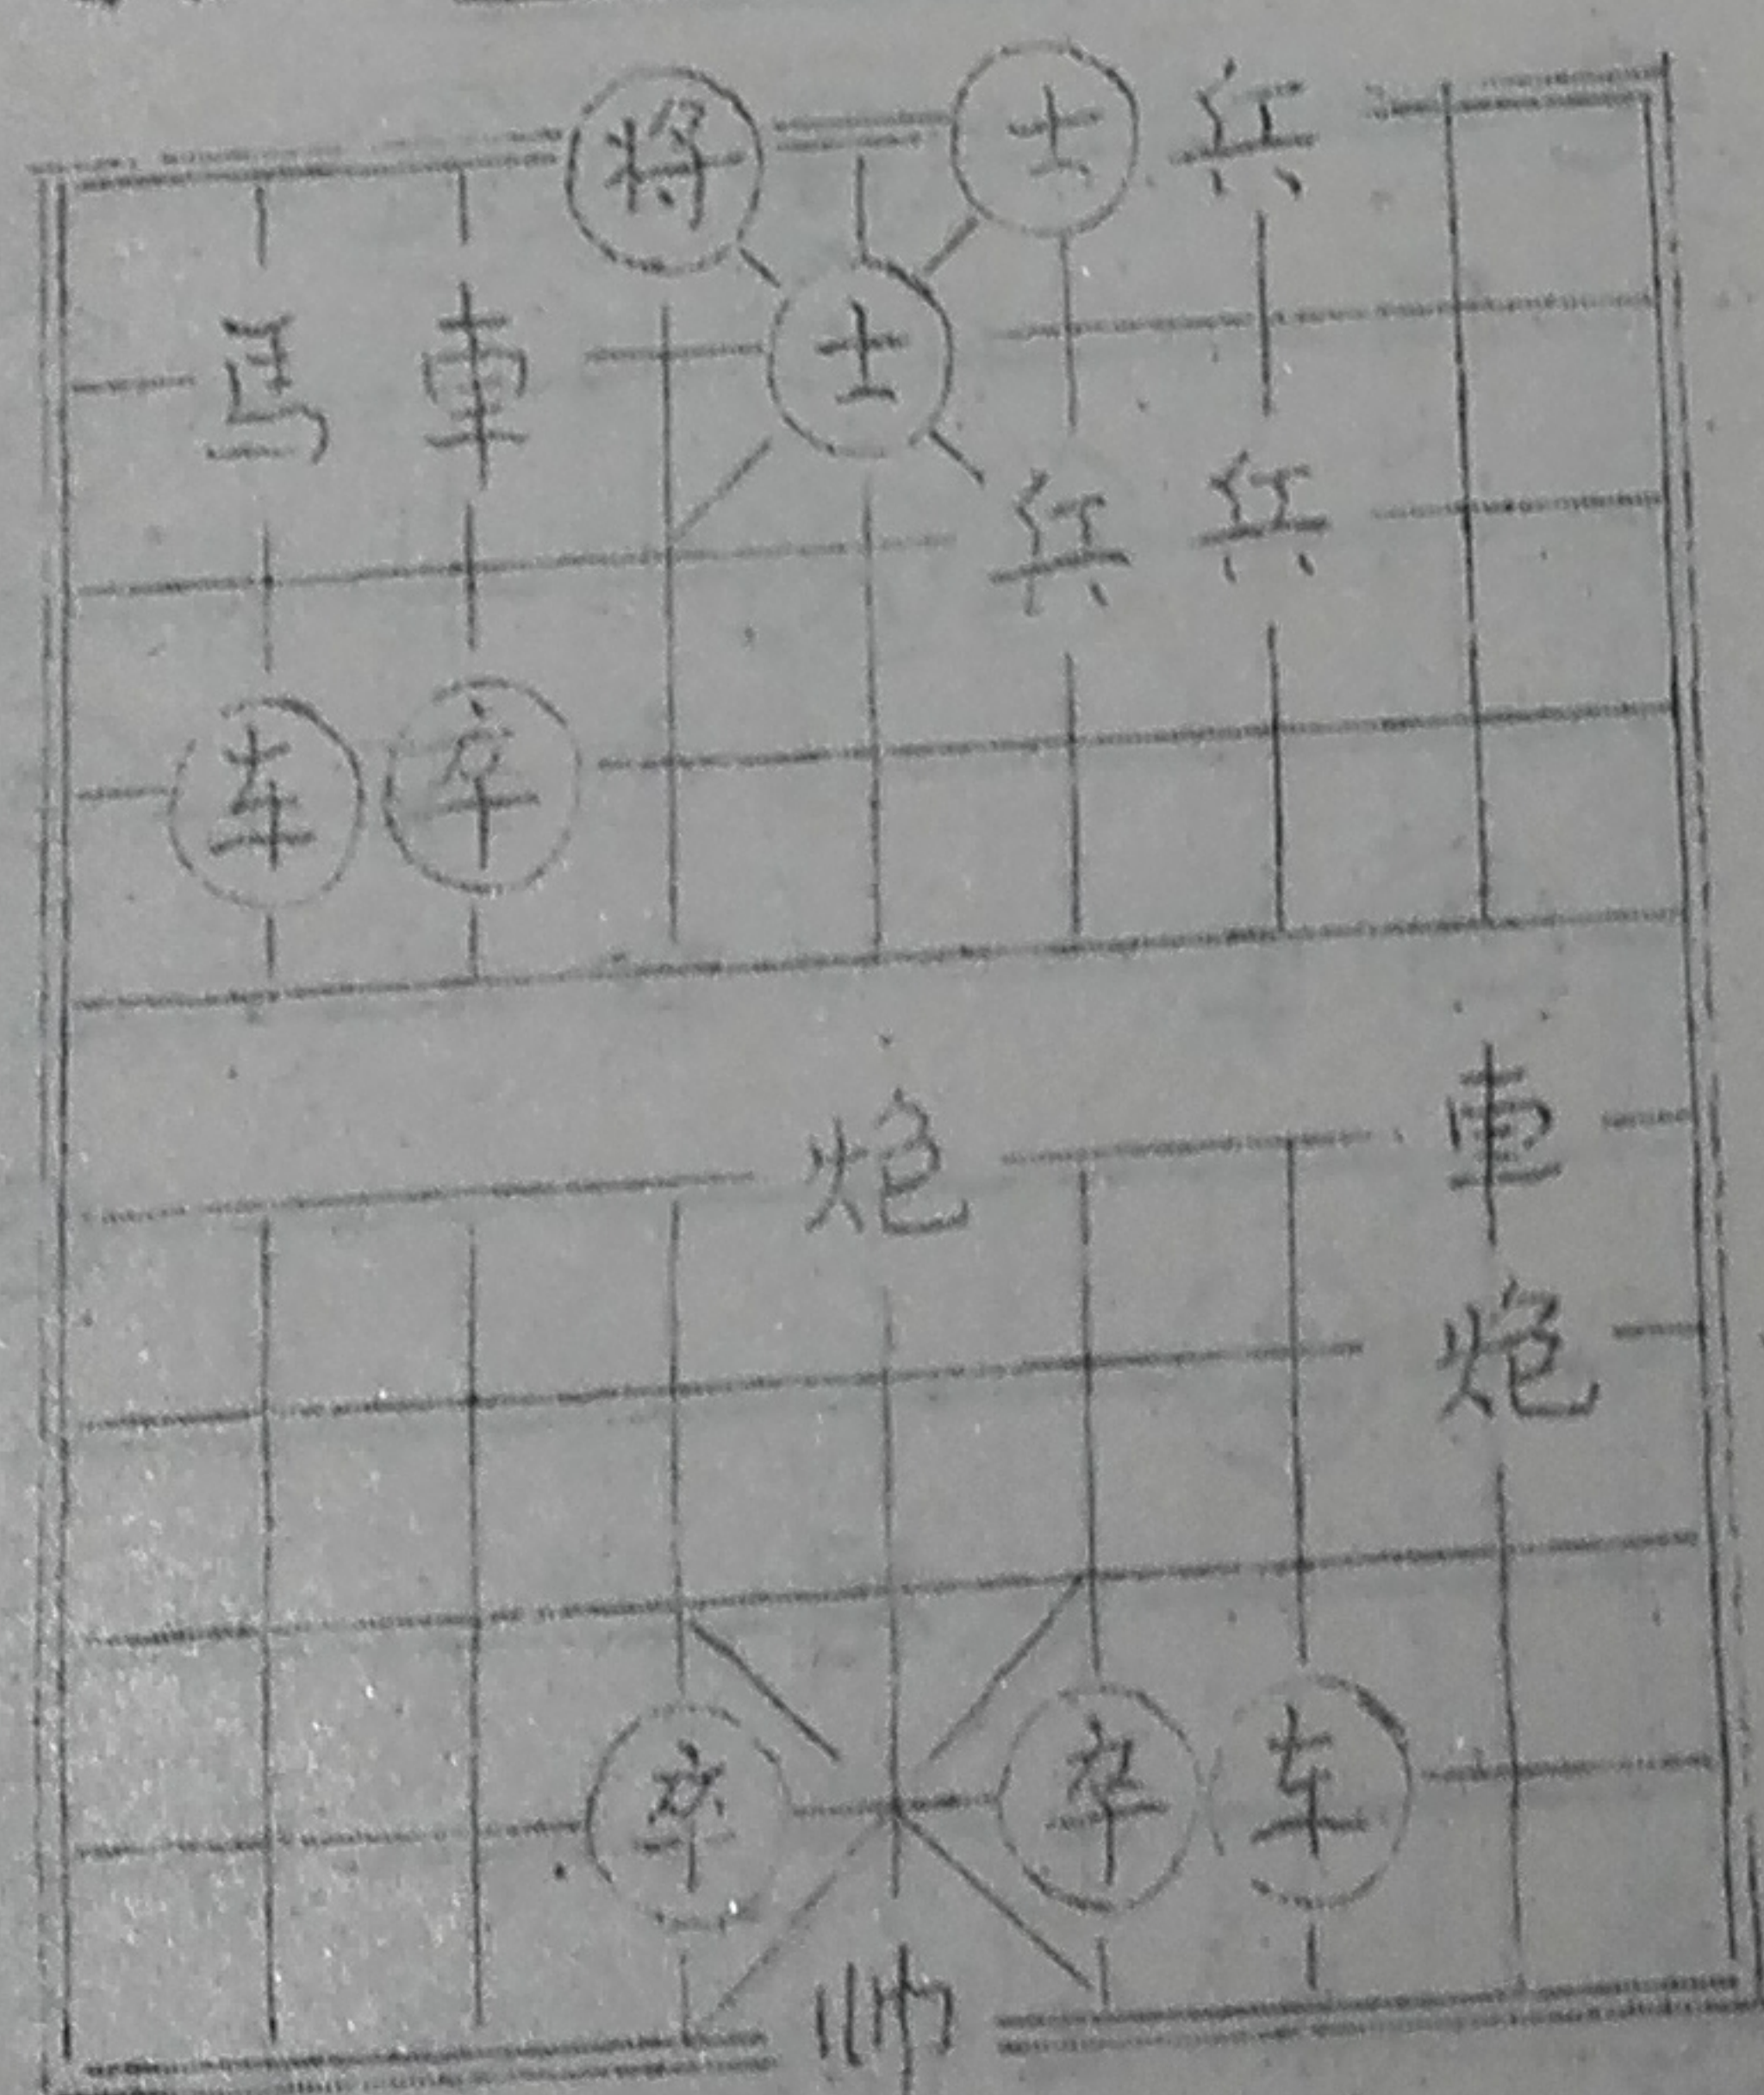 将 士 兵
馬 車 士
兵 兵
车 卒
炮 車
炮
卒 卒 车
帅